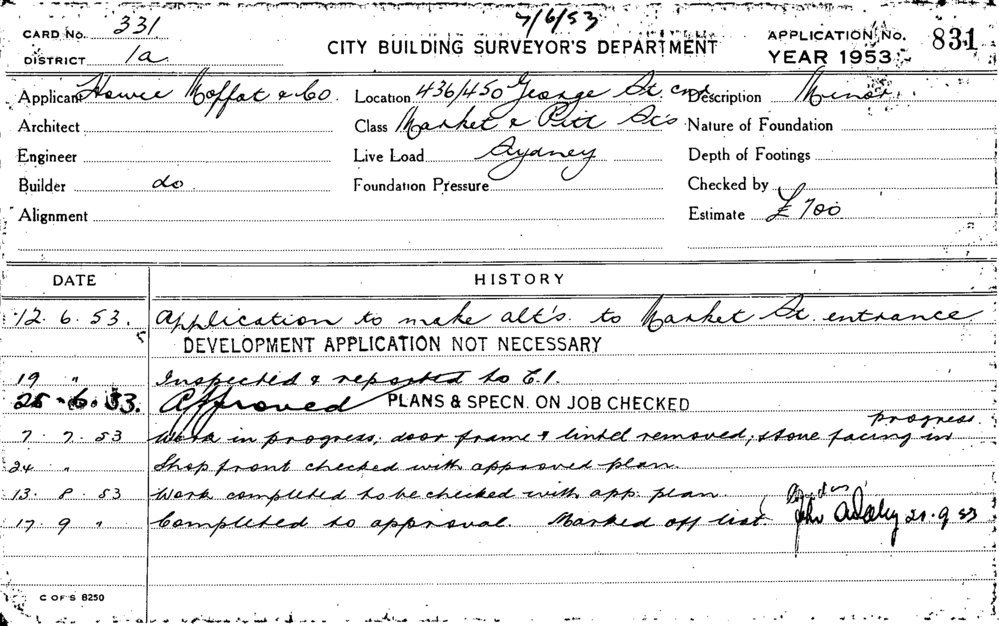 7/6/53
CARD No. 331
CITY BUILDING SURVEYOR'S DEPARTMENT
APPLICATION No. 831
DISTRICT 1a
YEAR 1953
Applicant Howie Moffat & Co. Location 436/450 George St. cnr Description Minor.
Architect Class Market & Pitt St's Nature of Foundation
Engineer Live Load Sydney Depth of Footings
Builder do Foundation Pressure Checked by
Alignment Estimate £700
DATE HISTORY
12. 6. 53. Application to make alt's. to Market St. entrance
DEVELOPMENT APPLICATION NOT NECESSARY
19 " Inspected & reported to C.I.
25. 6. 53. Approved PLANS & SPECN. ON JOB CHECKED
7. 7. 53 Work in progress; door frame & lintel removed; stone facing in progress.
24 " Shop front checked with approved plan.
13. 8. 53 Work completed to be checked with app. plan
17. 9 " Completed to approval. Marked off list John 21.9.53
C OF S 8250